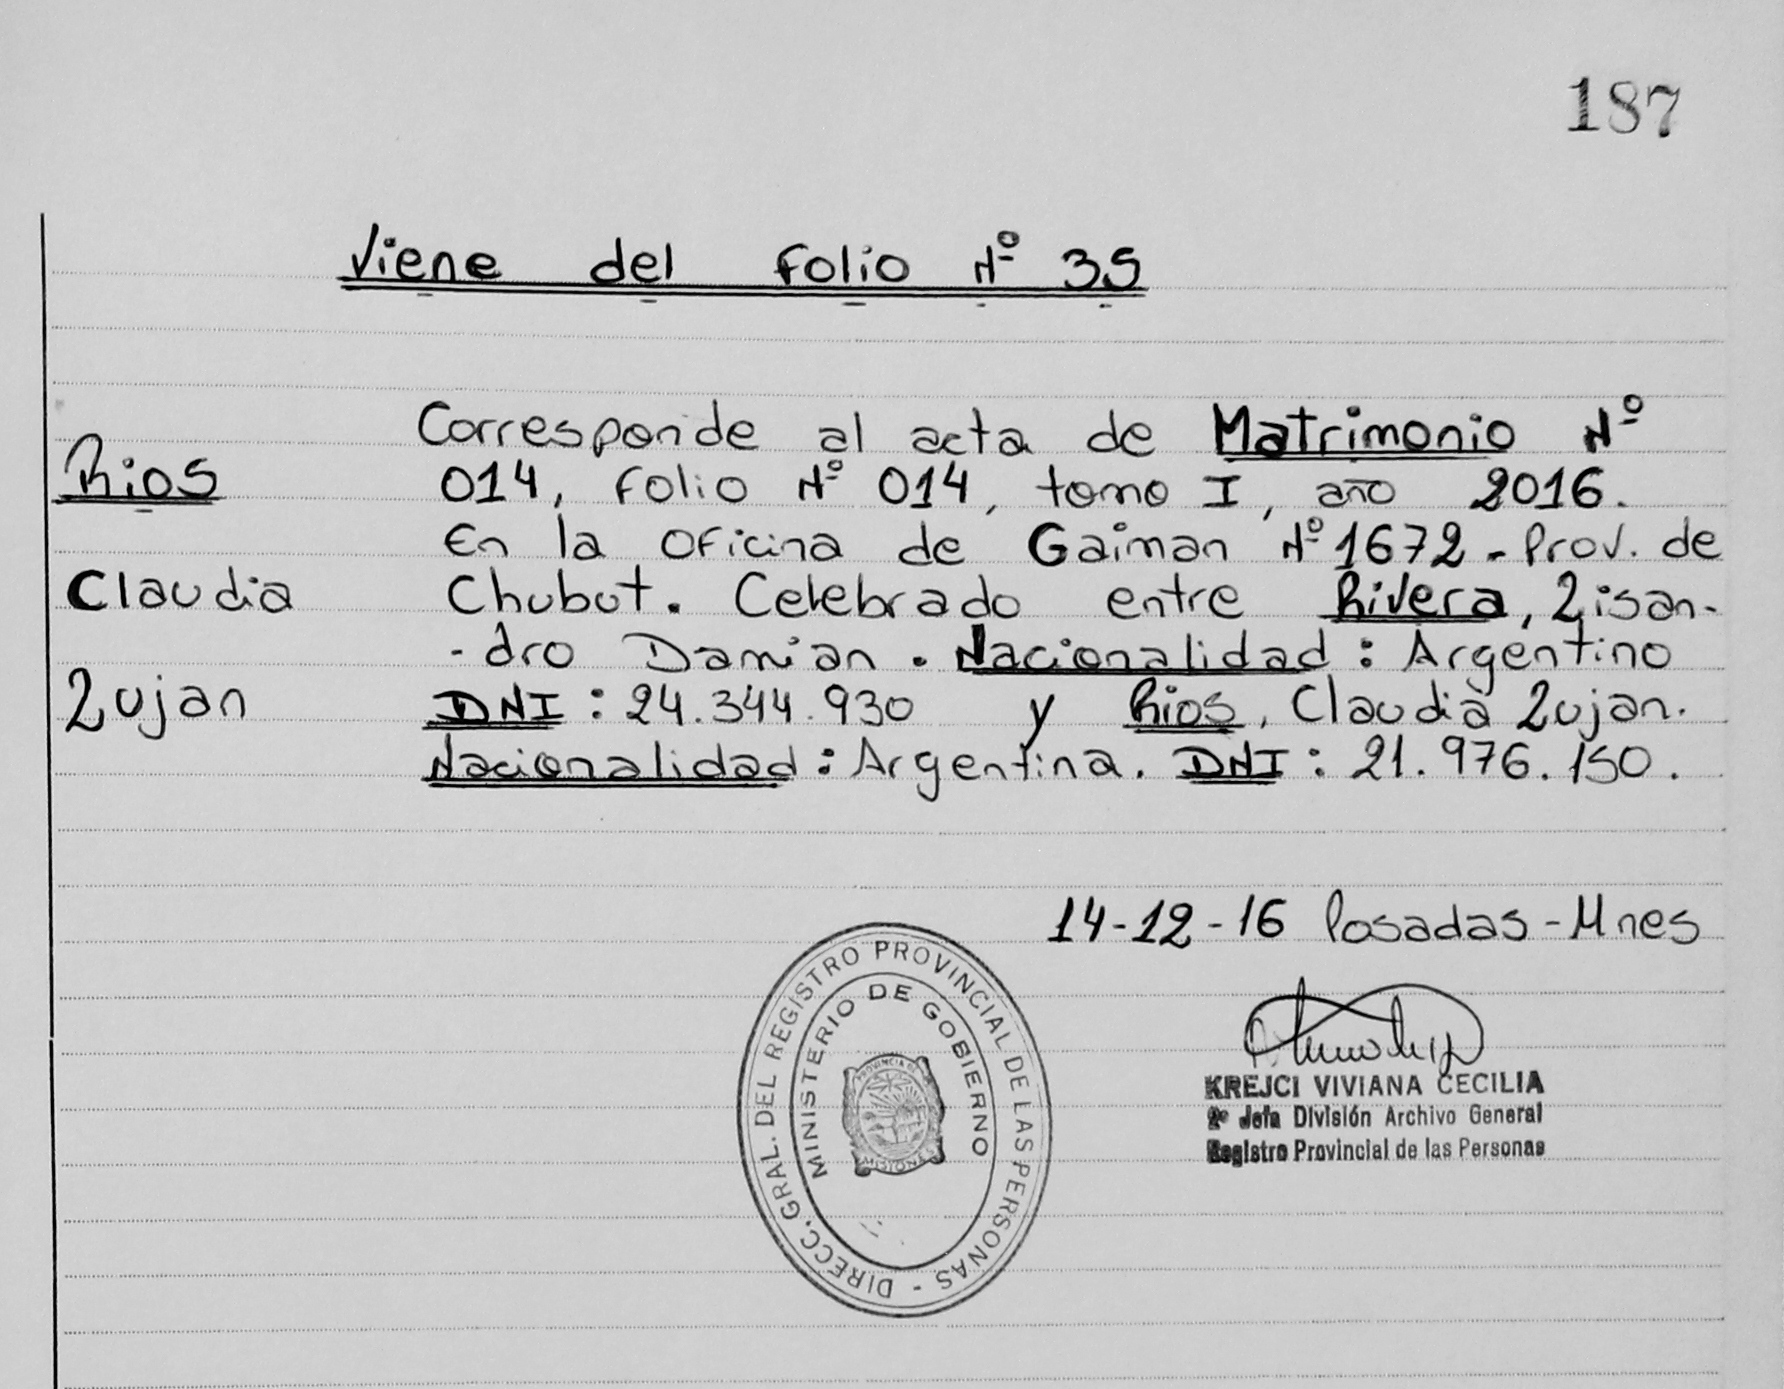 187
Viene del Folio Nº 35
Corresponde al acta de Matrimonio Nº
Rios
014, Folio Nº 014, tomo I, año 2016.
En la oficina de Gaiman Nº 1672 - Prov. de
Claudia
Chubut. Celebrado entre Rivera, Lisan-
-dro Damian. Nacionalidad: Argentino
Lujan
DNI: 24.344.930 y Rios, Claudia Lujan.
Nacionalidad: Argentina. DNI: 21.976.150.
14-12-16 Posadas - Mnes
DIRECC. GRAL. DEL REGISTRO PROVINCIAL DE LAS PERSONAS -
MINISTERIO DE GOBIERNO
PROVINCIA DE
MISIONES
KREJCI VIVIANA CECILIA
2º Jefa División Archivo General
Registro Provincial de las Personas